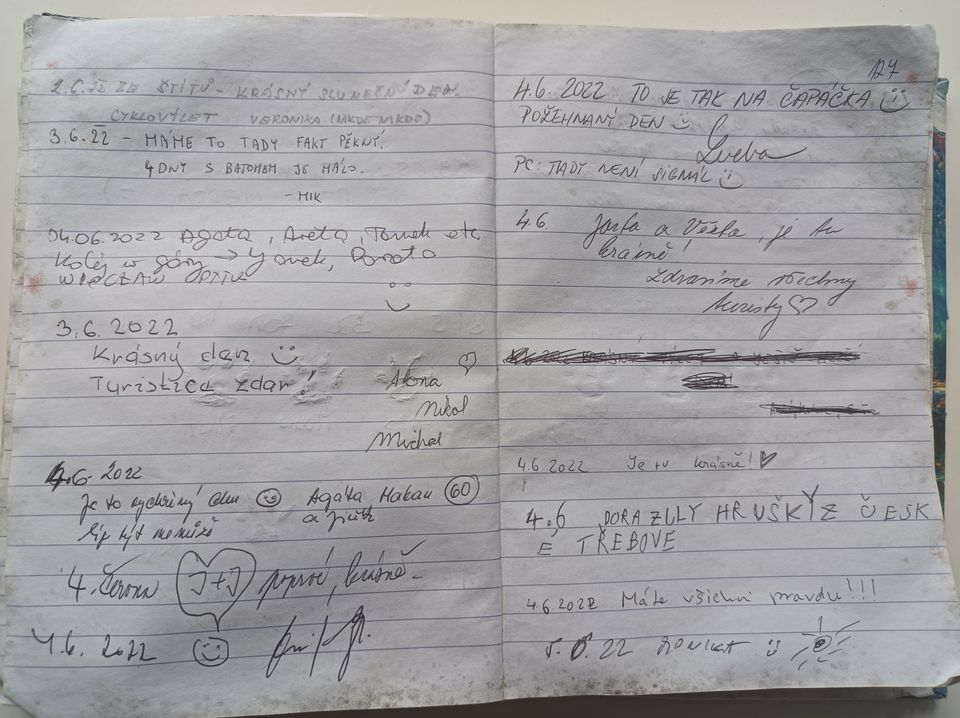 2.6. ZE ŠTÍTŮ - KRÁSNÝ SLUNEČNÍ DEN.
CYKLOVÝLET VERONIKA (NIKDE NIKDO)
3.6.22 - MÁME TO TADY FAKT PĚKNÝ.
4 DNY S BATOHEM JE MÁLO.
- MIK
04.06.2022 Agata, Aneta, Tomek etc
Kolej w góry → Jonek, Dorota
3.6.2022
Krásný den
Turistica zdar!
Alena
Nikol
Michal
4.6 2022
Je to den Agáta Makau 60
líp být nemůže a
4. Června J+J poprvé, krásně
4.6. 2022
127
4.6. 2022 TO JE TAK NA ČAPÁČKA
POŽEHNANÝ DEN
PC: TADY NENÍ SIGNÁL
4.6. a je tu
krásně!
Zdravíme všechny
turisty
4.6.2022 Je tu krásně!
4.6 DORAZILY HRUŠKY Z ČESK
É TŘEBOVE
4.6.2022 Máte všichni pravdu!!!
5.6.22 MONIKA